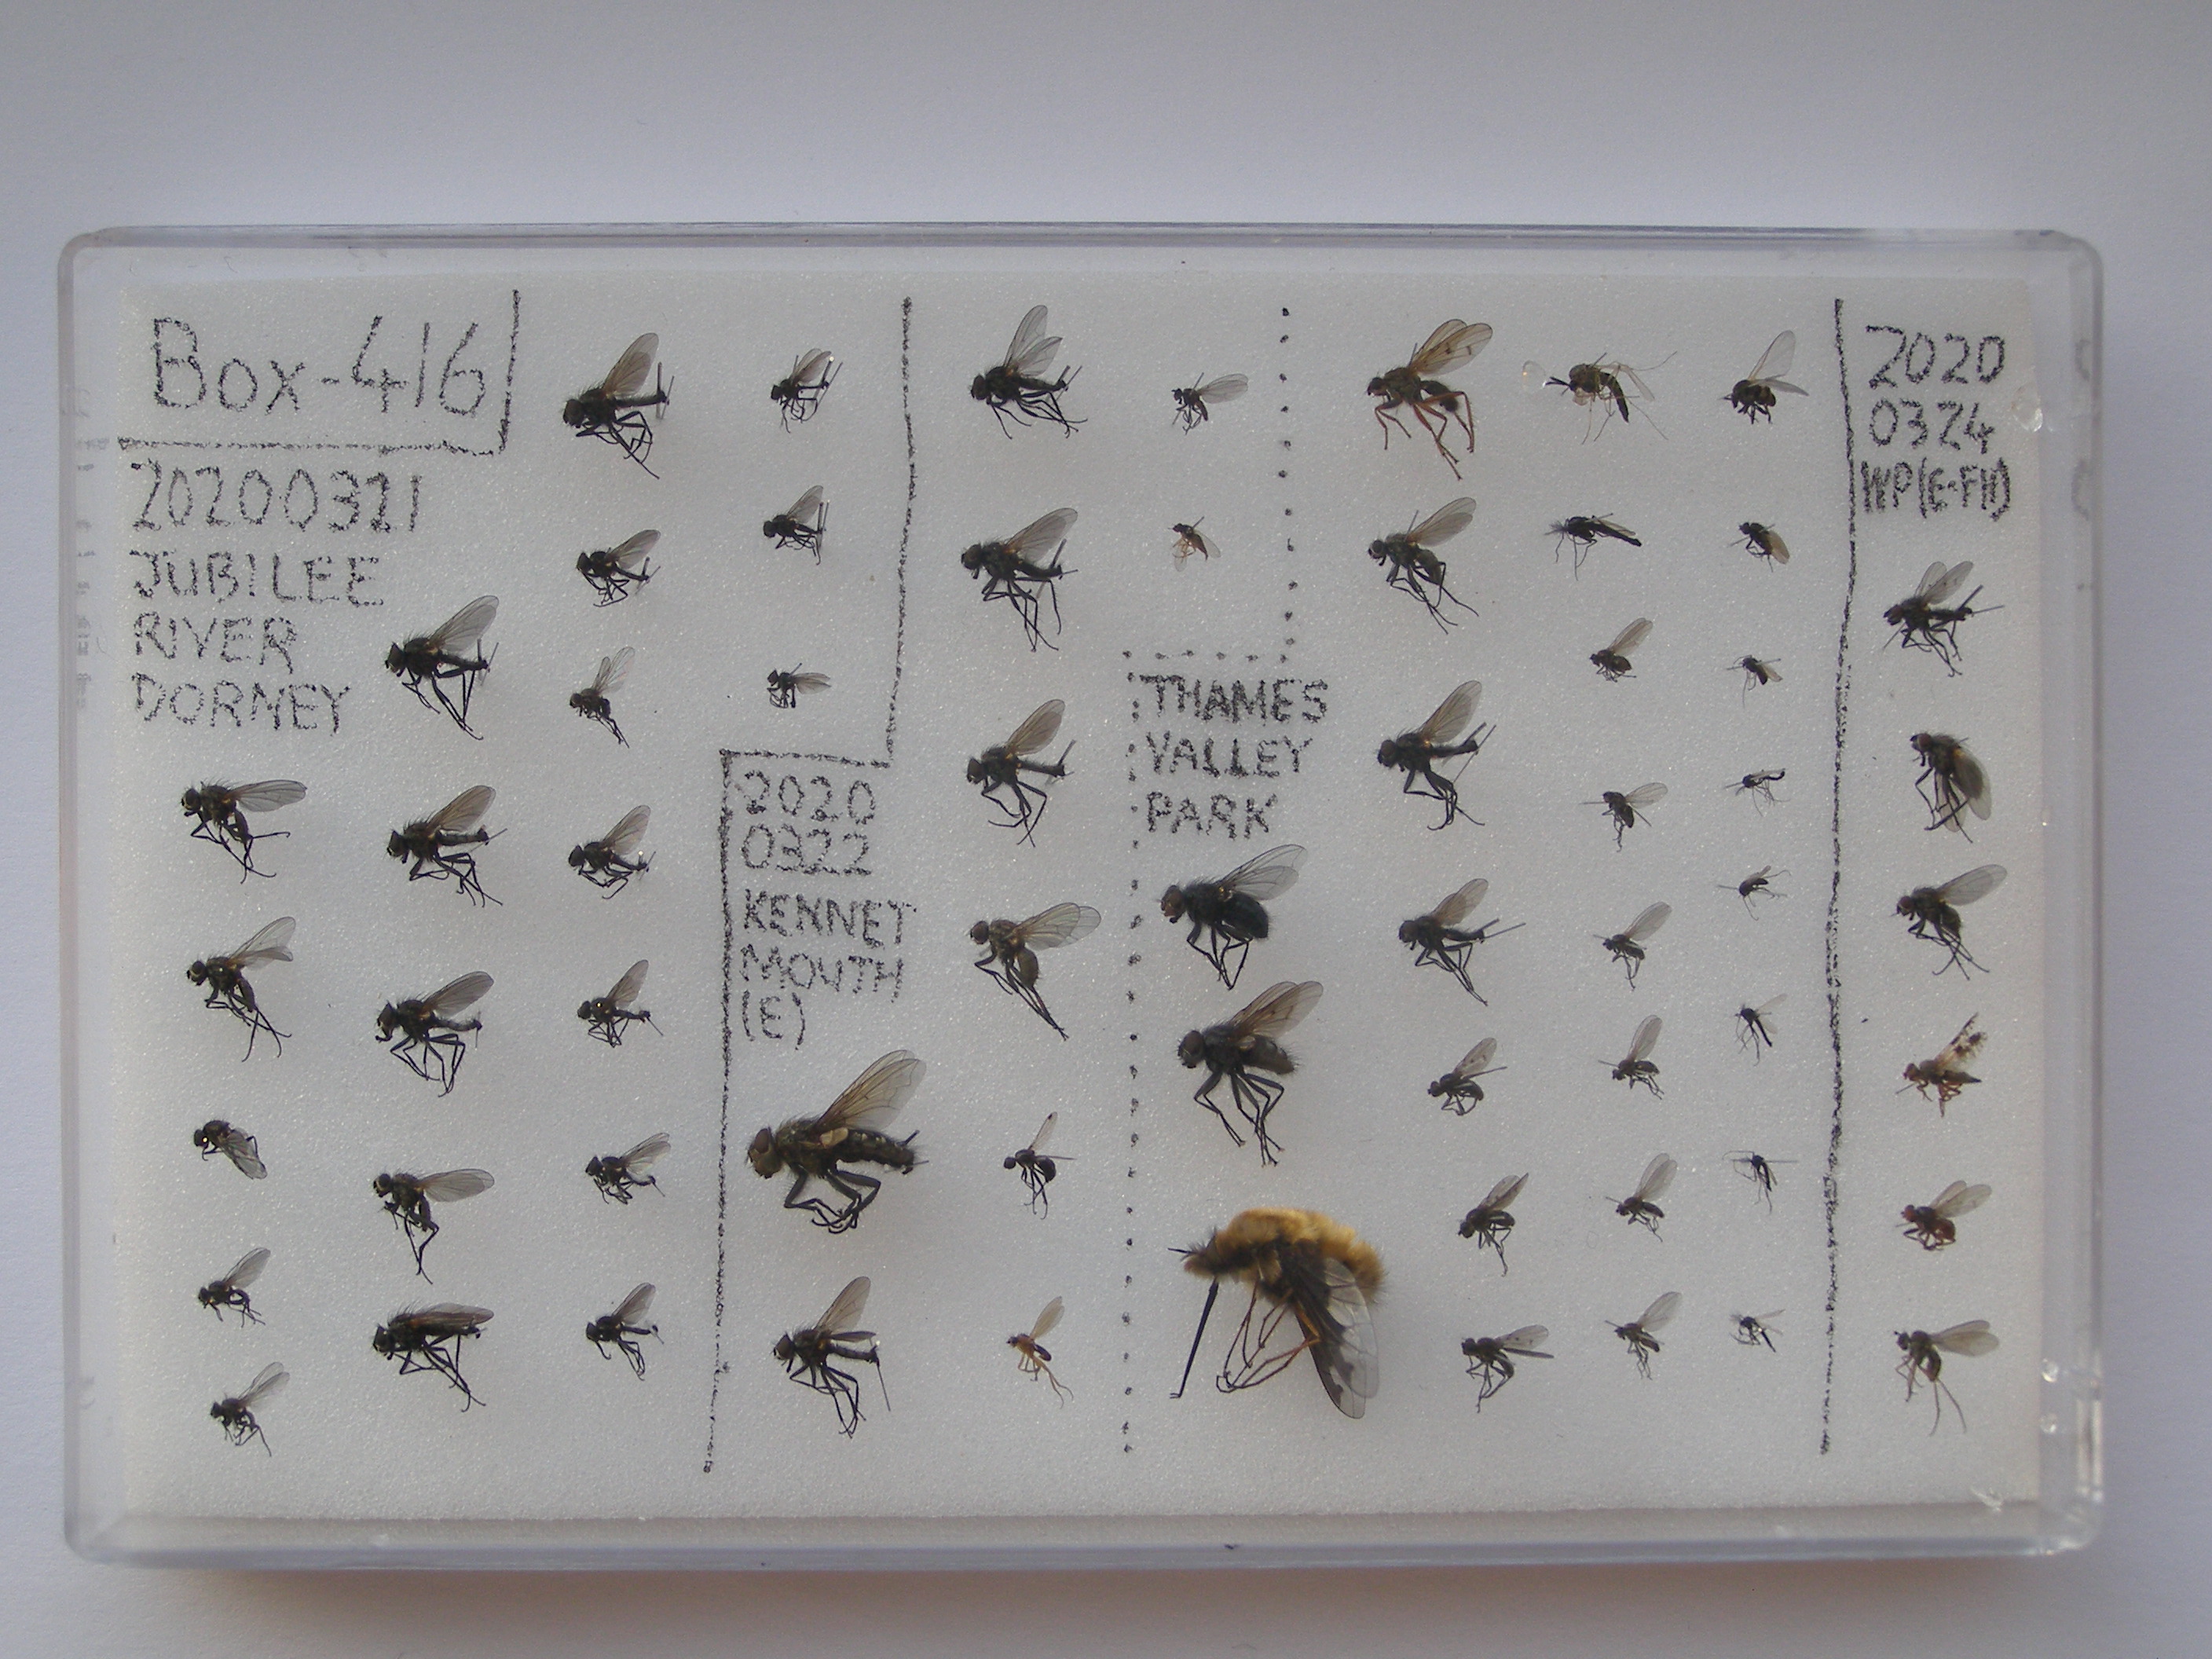 Box-416
20200321
JUBILEE
RIVER
DORNEY
2020
0322
KENNET
MOUTH
(E)
THAMES
VALLEY
PARK
2020
0324
WP(E-FH)